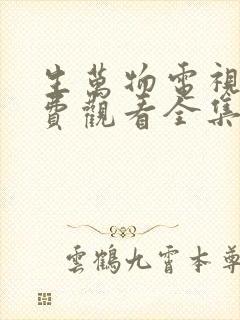 生萬物電視
費觀看全集
雲鶴九霄本尊